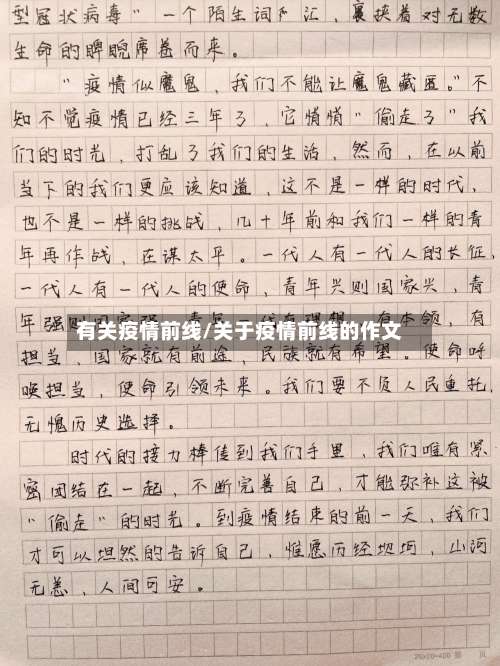 型冠状病毒"一个陌生词汇，裹挟着对无数
生命的睥睨席卷而来。
"疫情似魔鬼，我们不能让魔鬼藏匿。"不
知不觉疫情已经三年了，它悄悄"偷走了"我
们的时光，打乱了我们的生活，然而，在以前
当下的我们更应该知道，这不是一样的时代，
也不是一样的挑战，几十年前和我们一样的青
年再作战，在谋太平。一代人有一代人的长征，
一代人有一代人的使命，青年兴则国家兴，青
年强则国家强，青年一代有理想、有本领，有
有关疫情前线/关于疫情前线的作文
担当，国家就有前途，民族就有希望。使命呼
唤担当，使命引领未来。我们要不负人民重托，
无愧历史选择。
时代的接力棒传到我们手里，我们唯有紧
密团结在一起，不断完善自己，才能弥补这被
"偷走"的时光。到疫情结束的前一天，我们
才可以坦然的告诉自己，惟愿历经坎坷，山河
无恙，人间可安。
20×20=400
页